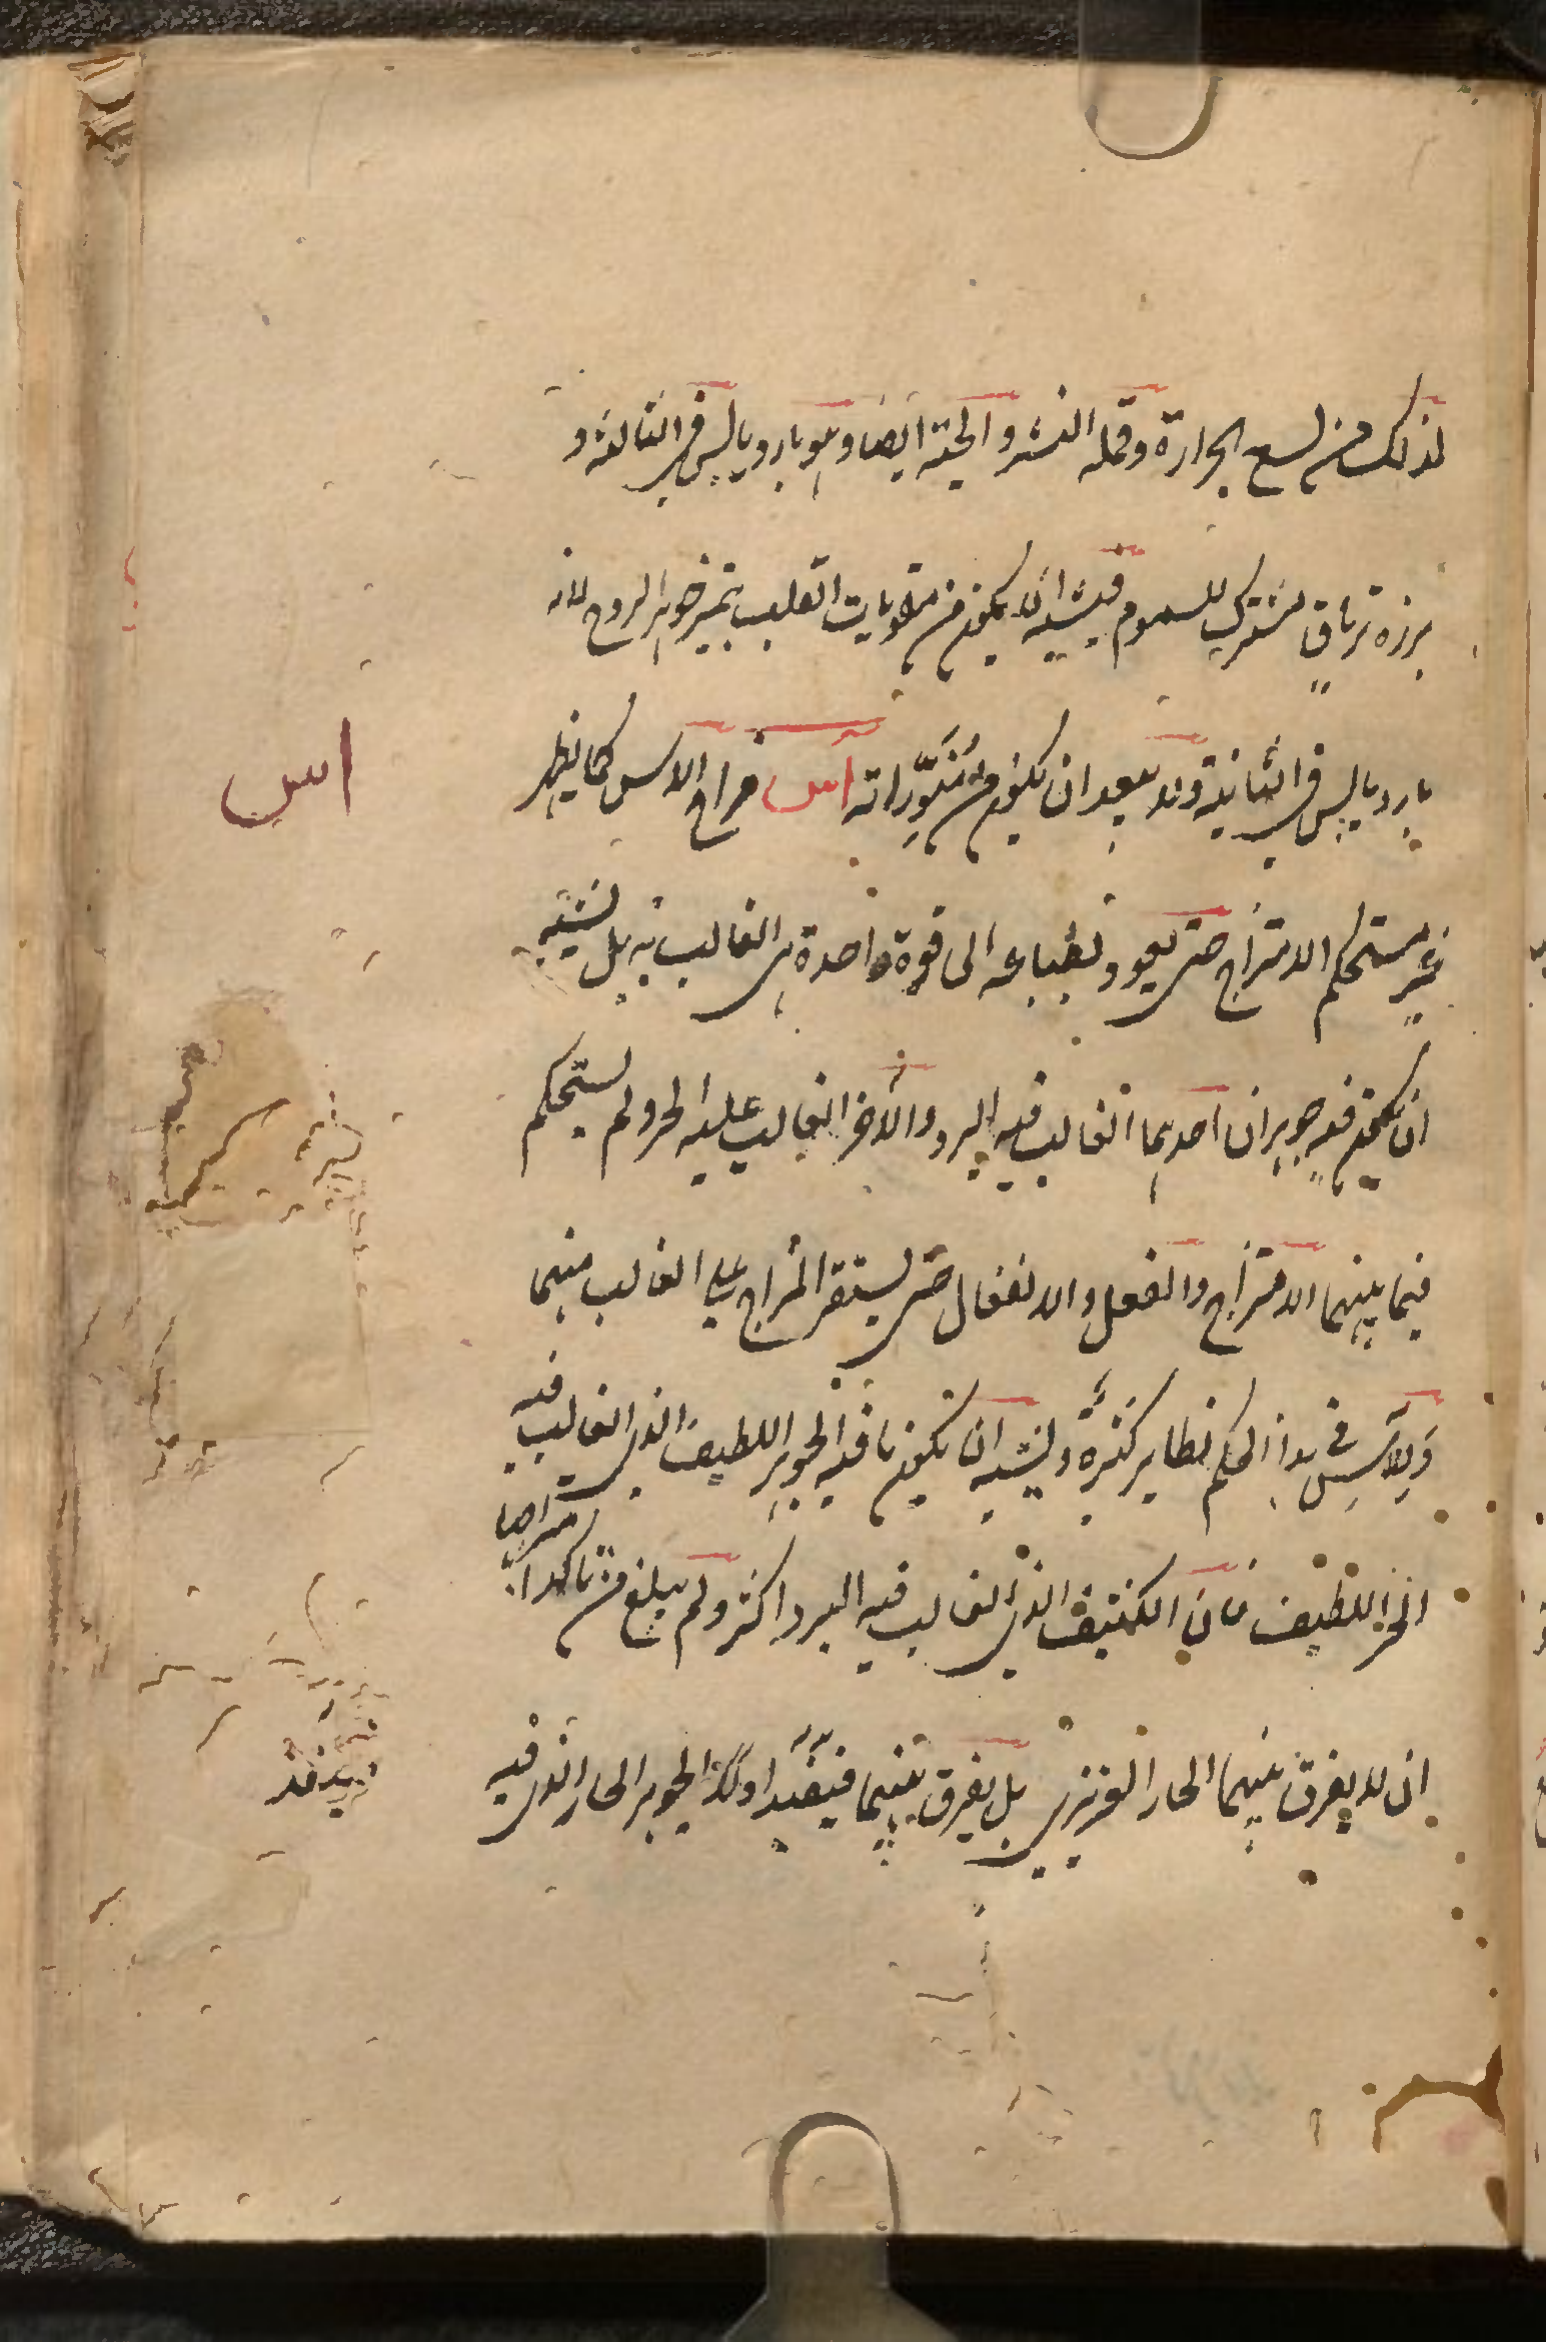 لذلك من لسع الجرارة وقملة النسر والحية ايضا وهو بارد يابس في الثالثة و
بزره ترياق مشترك للسموم فيشبه ان يكون من مقويات القلب بتمييز جوهر الروح لانه
بارد يابس في الثانية ولا يبعد ان يكون من مُنَوِّراته آس مزاج الآس كما يظهر
اس
غير مستحكم الامتزاج حتى يعود بطباعه الى قوة واحدة هي الغالب به بل يشبه
ان يكون فيه جوهران احدهما الغالب فيه البرد والآخر الغالب عليه الحر ولم يستحكم
فيما بينهما الامتزاج والفعل والانفعال حتى يستقر المزاج على الغالب منهما
وَلِلآسِ في هذا الحكم نظاير كثيرةٌ ويشبه ان يكون ما فيه الجوهر اللطيف الذي الغالب فيه
الحر اللطيف فان الكثيف الذي الغالب فيه البرد اكثر ولم يبلغ من تاكد امتزاجهما
ان لا يفرق بينهما الحار الغريزي بل يفرق بينهما فينفذ اولا الجوهر الحار الذي فيه